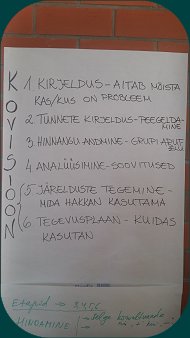 KOVISIOON
1 KIRJELDUS - AITAB MÕISTA
KAS/KUS ON PROBLEEM
2 TUNNETE KIRJELDUS - PEEGELDA-
MINE
3 HINNANGU ANDMINE - GRUPI ABIT
4 ANALÜÜSIMINE - SOOVITUSED
5 JÄRELDUSTE TEGEMINE -
MIDA HAKKAN KASUTAMA
6. TEGEVUSPLAAN - KUIDAS
KASUTAN
Etapid → 3,4,5,6
HINDAMINE